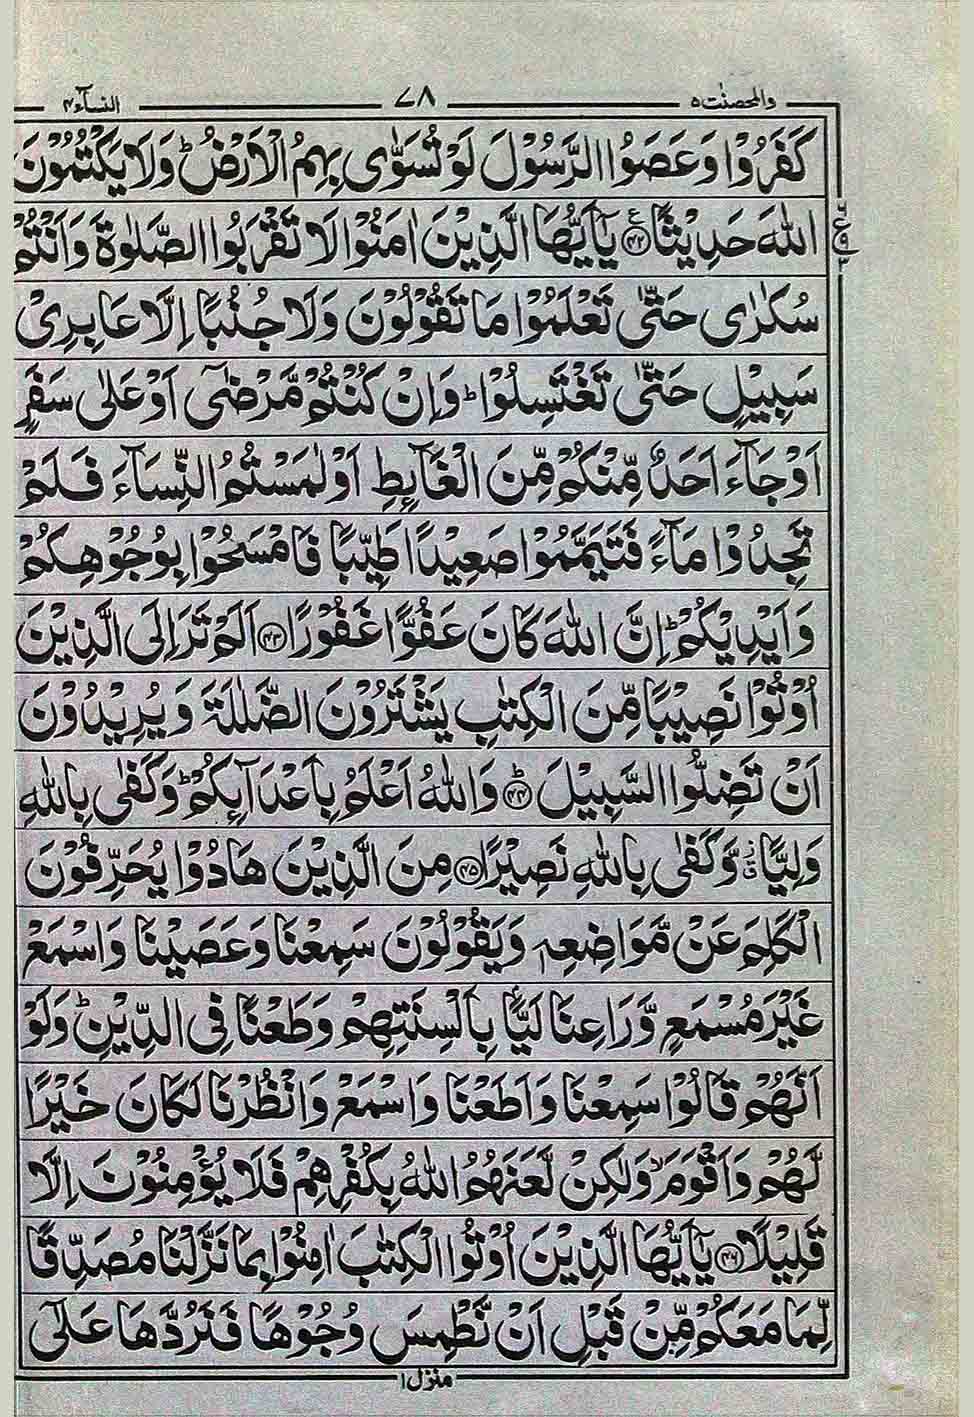 والمحصنٰت ۵ ۷۸ النسآء ۴
كَفَرُوْا وَعَصَوُا الرَّسُوْلَ لَوْ تُسَوّٰى بِهِمُ الْاَرْضُ ؕ وَلَا يَكْتُمُوْنَ
اللّٰهَ حَدِيْثًا ﴿۴۲﴾ يٰۤاَيُّهَا الَّذِيْنَ اٰمَنُوْا لَا تَقْرَبُوا الصَّلٰوةَ وَاَنْتُمْ
سُكٰرٰى حَتّٰى تَعْلَمُوْا مَا تَقُوْلُوْنَ وَلَا جُنُبًا اِلَّا عَابِرِيْ
سَبِيْلٍ حَتّٰى تَغْتَسِلُوْا ؕ وَاِنْ كُنْتُمْ مَّرْضٰۤى اَوْ عَلٰى سَفَرٍ
اَوْ جَآءَ اَحَدٌ مِّنْكُمْ مِّنَ الْغَآئِطِ اَوْ لٰمَسْتُمُ النِّسَآءَ فَلَمْ
تَجِدُوْا مَآءً فَتَيَمَّمُوْا صَعِيْدًا طَيِّبًا فَامْسَحُوْا بِوُجُوْهِكُمْ
وَاَيْدِيْكُمْ ؕ اِنَّ اللّٰهَ كَانَ عَفُوًّا غَفُوْرًا ﴿۴۳﴾ اَلَمْ تَرَ اِلَى الَّذِيْنَ
اُوْتُوْا نَصِيْبًا مِّنَ الْكِتٰبِ يَشْتَرُوْنَ الضَّلٰلَةَ وَيُرِيْدُوْنَ
اَنْ تَضِلُّوا السَّبِيْلَ ﴿۴۴﴾ؕ وَاللّٰهُ اَعْلَمُ بِاَعْدَآئِكُمْ ؕ وَكَفٰى بِاللّٰهِ
وَلِيًّا ۗ٘ وَّكَفٰى بِاللّٰهِ نَصِيْرًا ﴿۴۵﴾ مِنَ الَّذِيْنَ هَادُوْا يُحَرِّفُوْنَ
الْكَلِمَ عَنْ مَّوَاضِعِهٖ وَيَقُوْلُوْنَ سَمِعْنَا وَعَصَيْنَا وَاسْمَعْ
غَيْرَ مُسْمَعٍ وَّرَاعِنَا لَيًّۢا بِاَلْسِنَتِهِمْ وَطَعْنًا فِى الدِّيْنِ ؕ وَلَوْ
اَنَّهُمْ قَالُوْا سَمِعْنَا وَاَطَعْنَا وَاسْمَعْ وَانْظُرْنَا لَكَانَ خَيْرًا
لَّهُمْ وَاَقْوَمَ ۙ وَلٰكِنْ لَّعَنَهُمُ اللّٰهُ بِكُفْرِهِمْ فَلَا يُؤْمِنُوْنَ اِلَّا
قَلِيْلًا ﴿۴۶﴾ يٰۤاَيُّهَا الَّذِيْنَ اُوْتُوا الْكِتٰبَ اٰمِنُوْا بِمَا نَزَّلْنَا مُصَدِّقًا
لِّمَا مَعَكُمْ مِّنْ قَبْلِ اَنْ نَّطْمِسَ وُجُوْهًا فَنَرُدَّهَا عَلٰۤى
منزل ۱